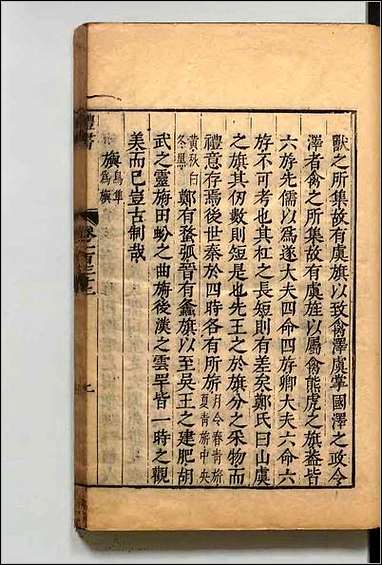 獸之所集故有虞旗以致禽澤虞掌國澤之政令
澤者禽之所集故有虞旌以屬禽熊虎之旗葢皆
六斿先儒以爲遂大夫四命四斿卿大夫六命六
斿不可考也其杠之長短則有差矣鄭氏曰山虞
之旗其仞數則短是也先王之於旗分之采物而
禮意存焉後世秦於四時各有所旂月令春青旂夏青旂中央
黃秋白冬黑鄭有蝥弧晉有螽旗以至吳王之建肥胡
武之靈旃田蚡之曲旃後漢之雲罕皆一時之觀
美而已豈古制哉
旟鳥隼爲旟
禮書 卷一百三十三